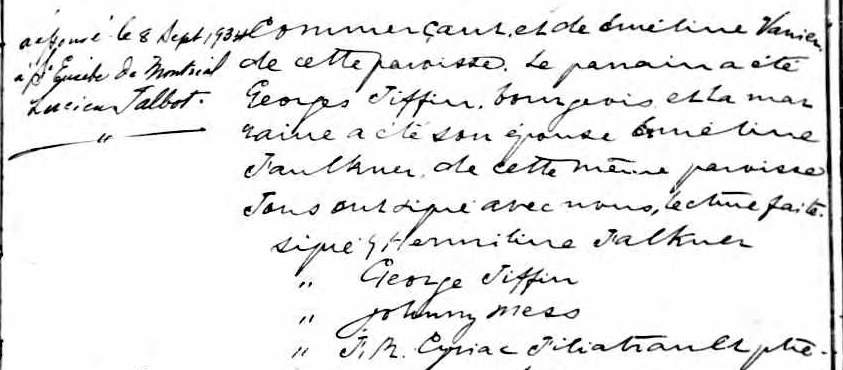 a épousé le 8 Sept 1934
à St Eusèbe de Montréal
Lucien Talbot.
"
Commerçant, et de Eméline Vanier
de cette paroisse. Le parrain a été
Georges Tiffin, bourgeois et la mar
raine a été son épouse Eméline
Faulkner, de cette même paroisse
Tous ont signé avec nous, lecture faite.
signé Hermiline Falkner
" George Tiffin
" Johnny Mess
" F. R. Cyriac Filiatrault ptre.